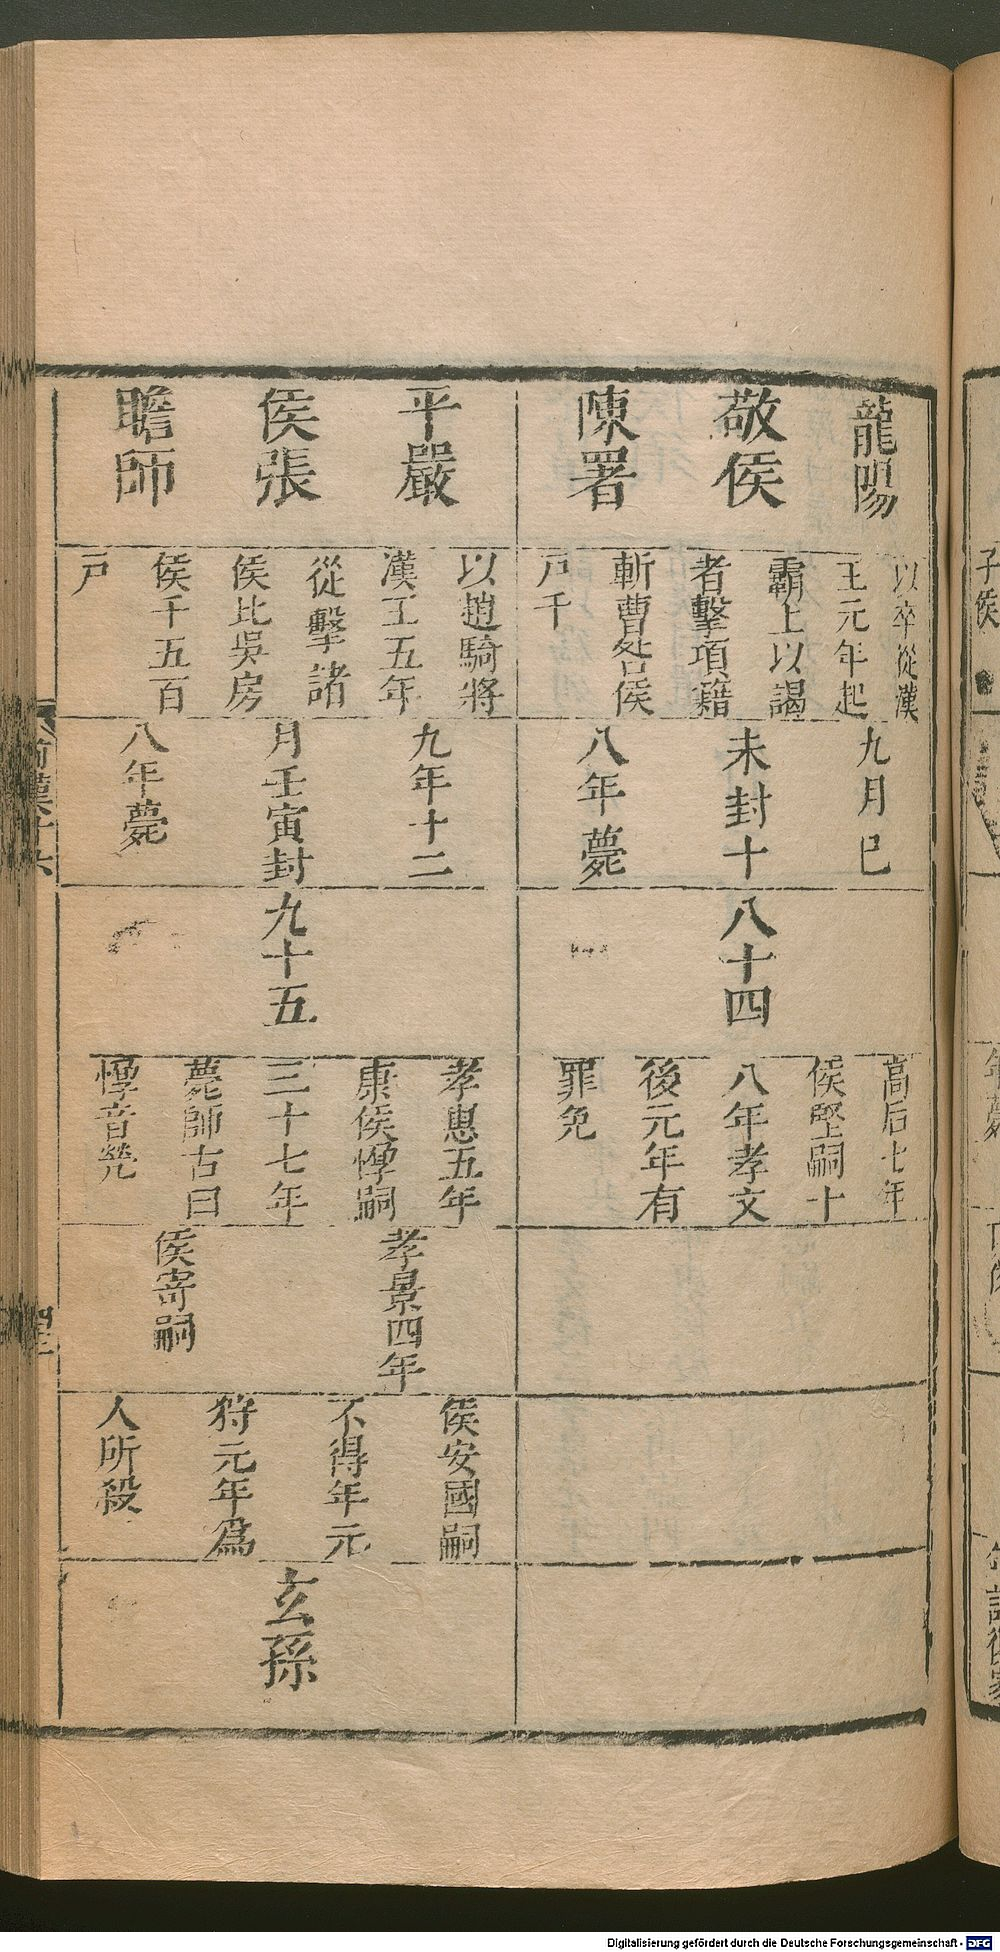 龍陽
敬侯
陳署
以卒從漢
王元年起
霸上以謁
者擊項籍
斬曹咎侯
戸千
九月巳
未封十
八年薨
八十四
高后七年
侯堅嗣十
八年孝文
後元年有
罪免
平嚴
侯張
瞻師
以趙騎將
漢王五年
從擊諸
侯比吳房
侯千五百
戸
九年十二
月壬寅封
八年薨
九十五
孝惠五年
康侯惸嗣
三十七年
薨師古曰
惸音煢
孝景四年
侯寄嗣
侯安國嗣
不得年元
狩元年爲
人所殺
玄孫
前漢十六
Digitalisierung gefördert durch die Deutsche Forschungsgemeinschaft - DFG